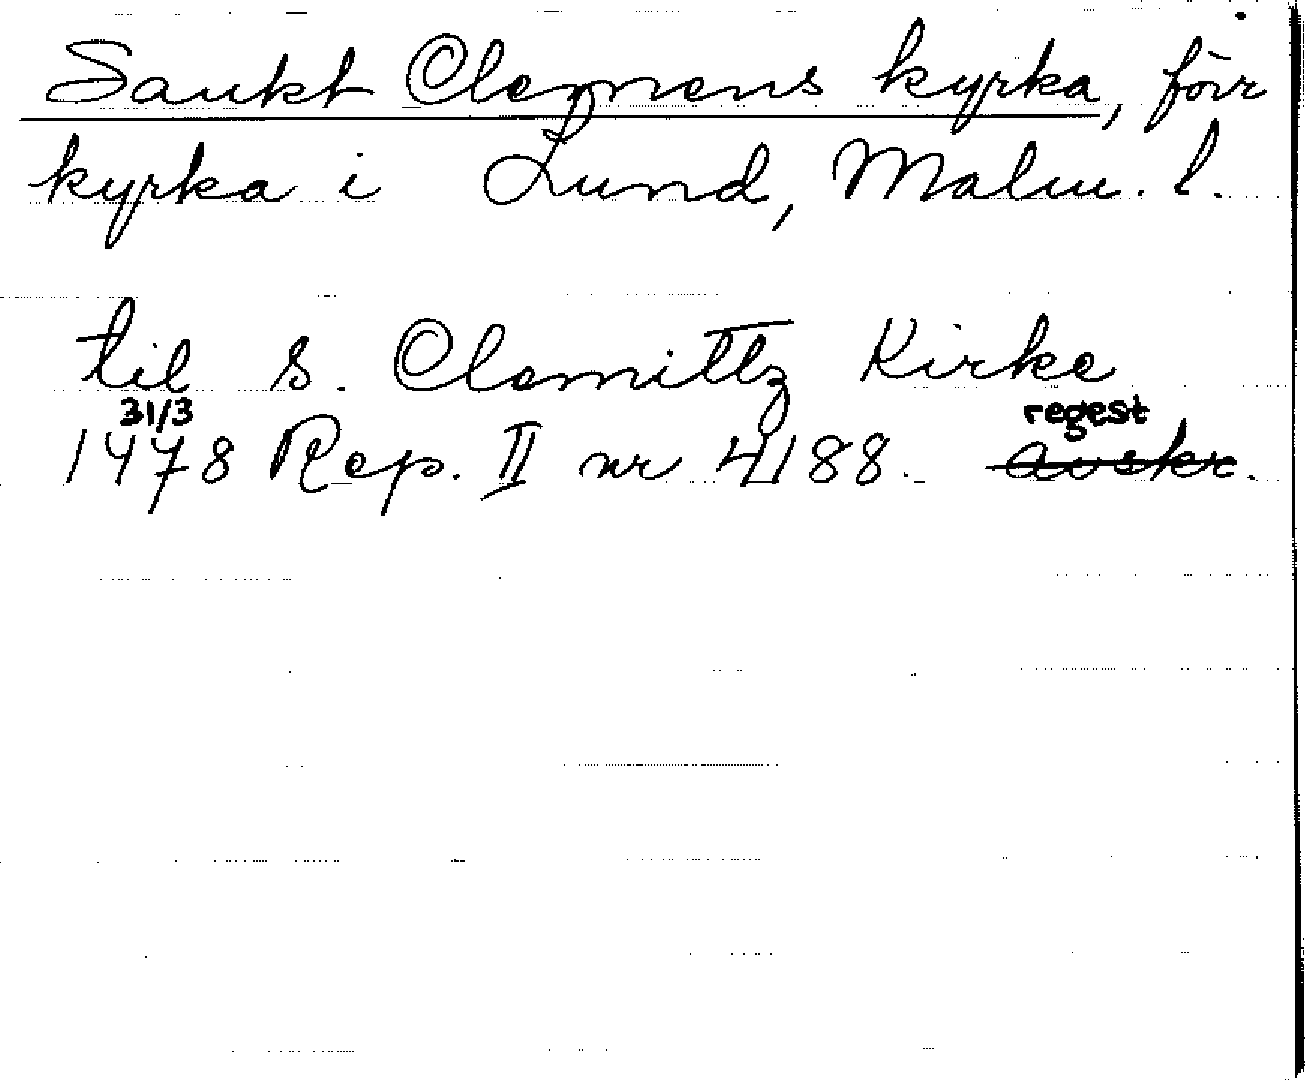 Sankt Clemens kyrka, förr
kyrka i Lund, Malm. l.
til S. Clemittz Kirke
31/3 regest
1478 Rep. II nr 4188. avskr.